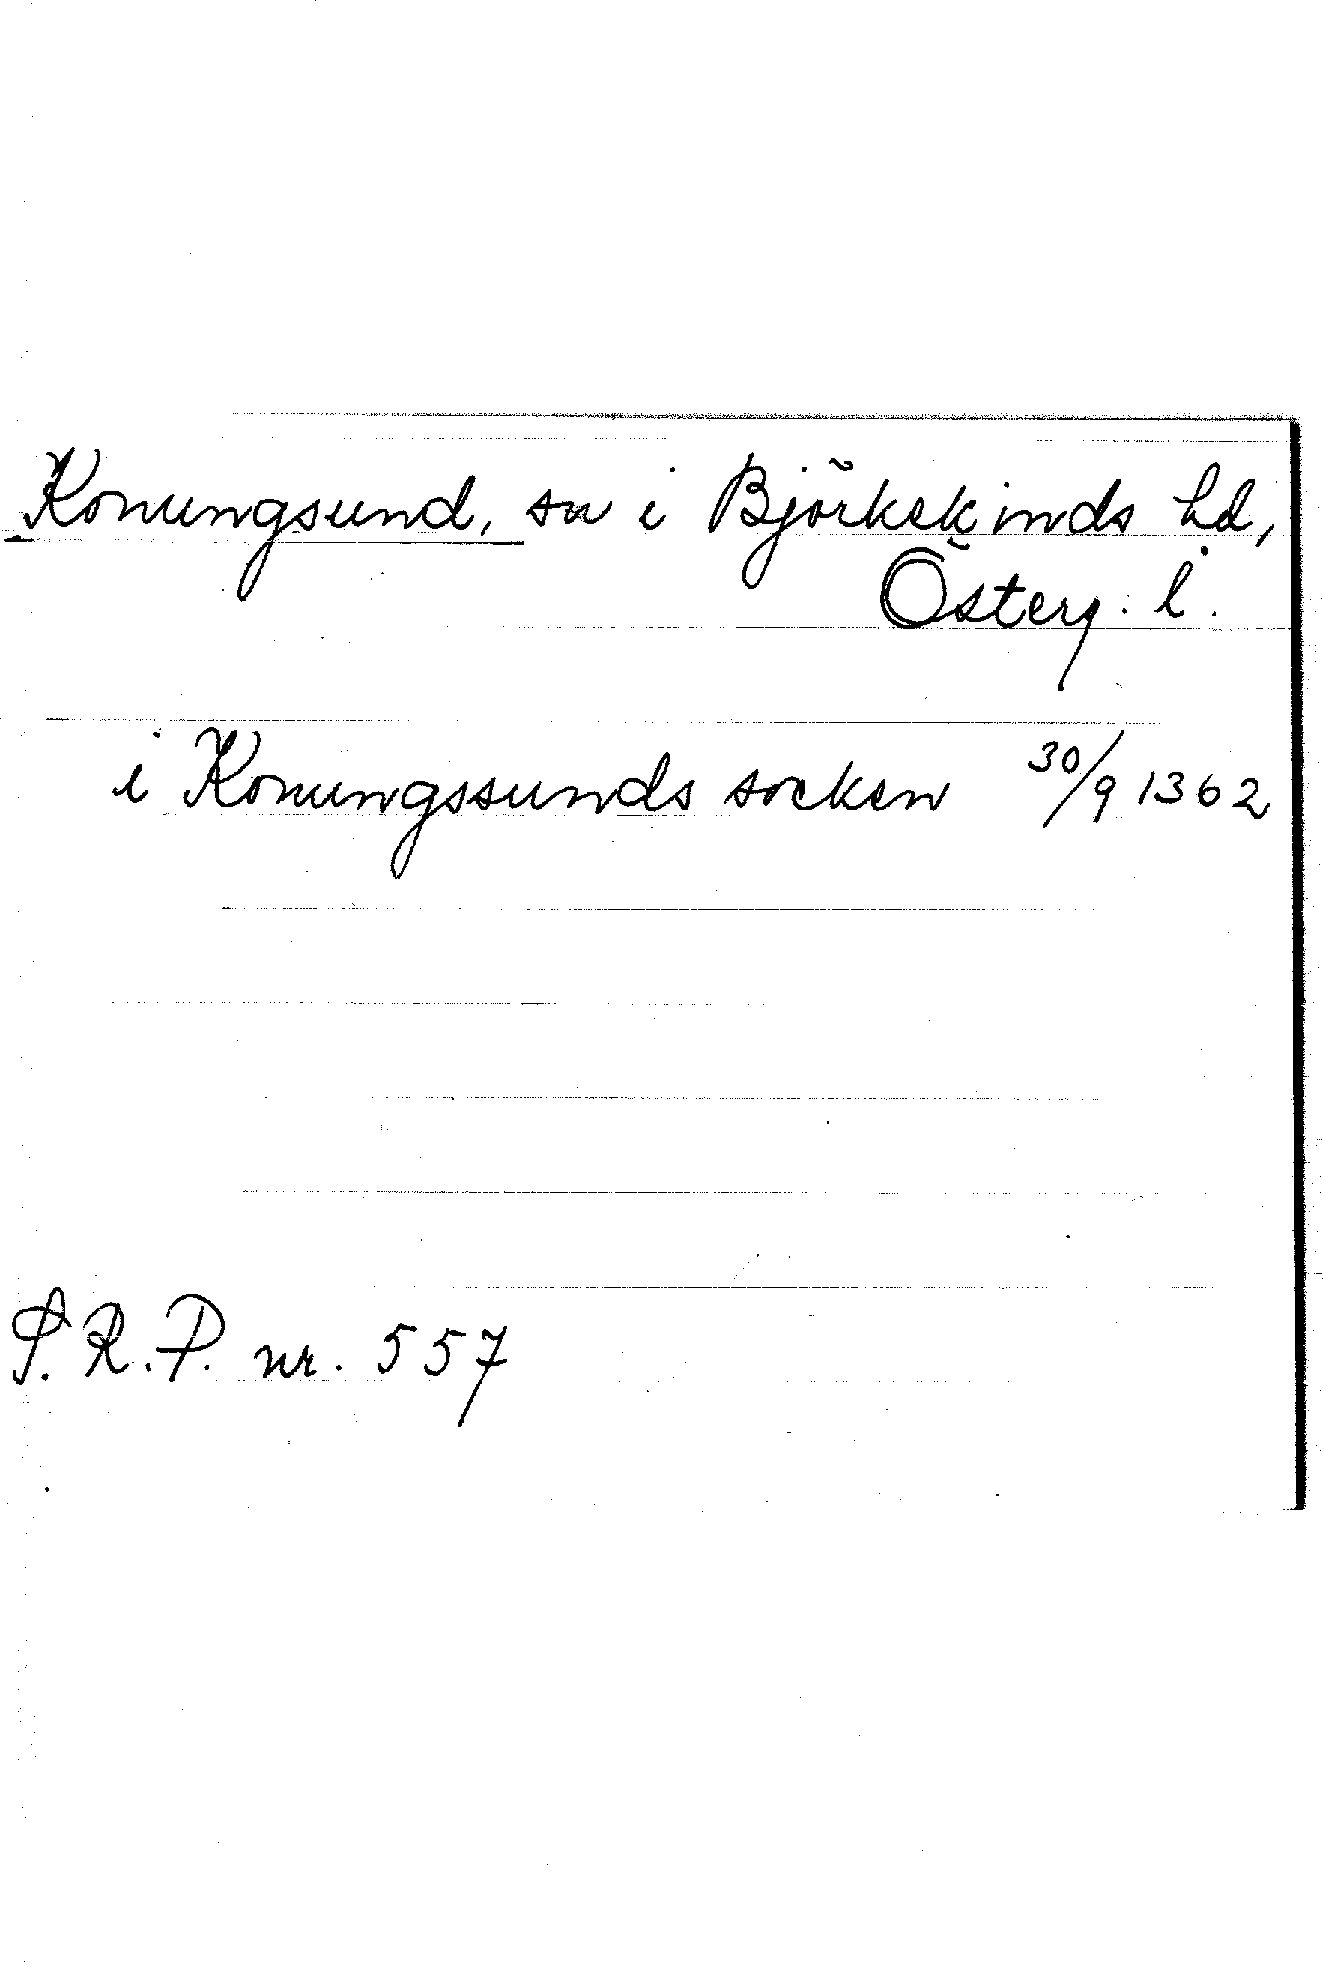 Konungsund, sn i Björkekinds hd,
Österg. l.
i Konungssunds socken 30/9 1362
S.R.P. nr. 557